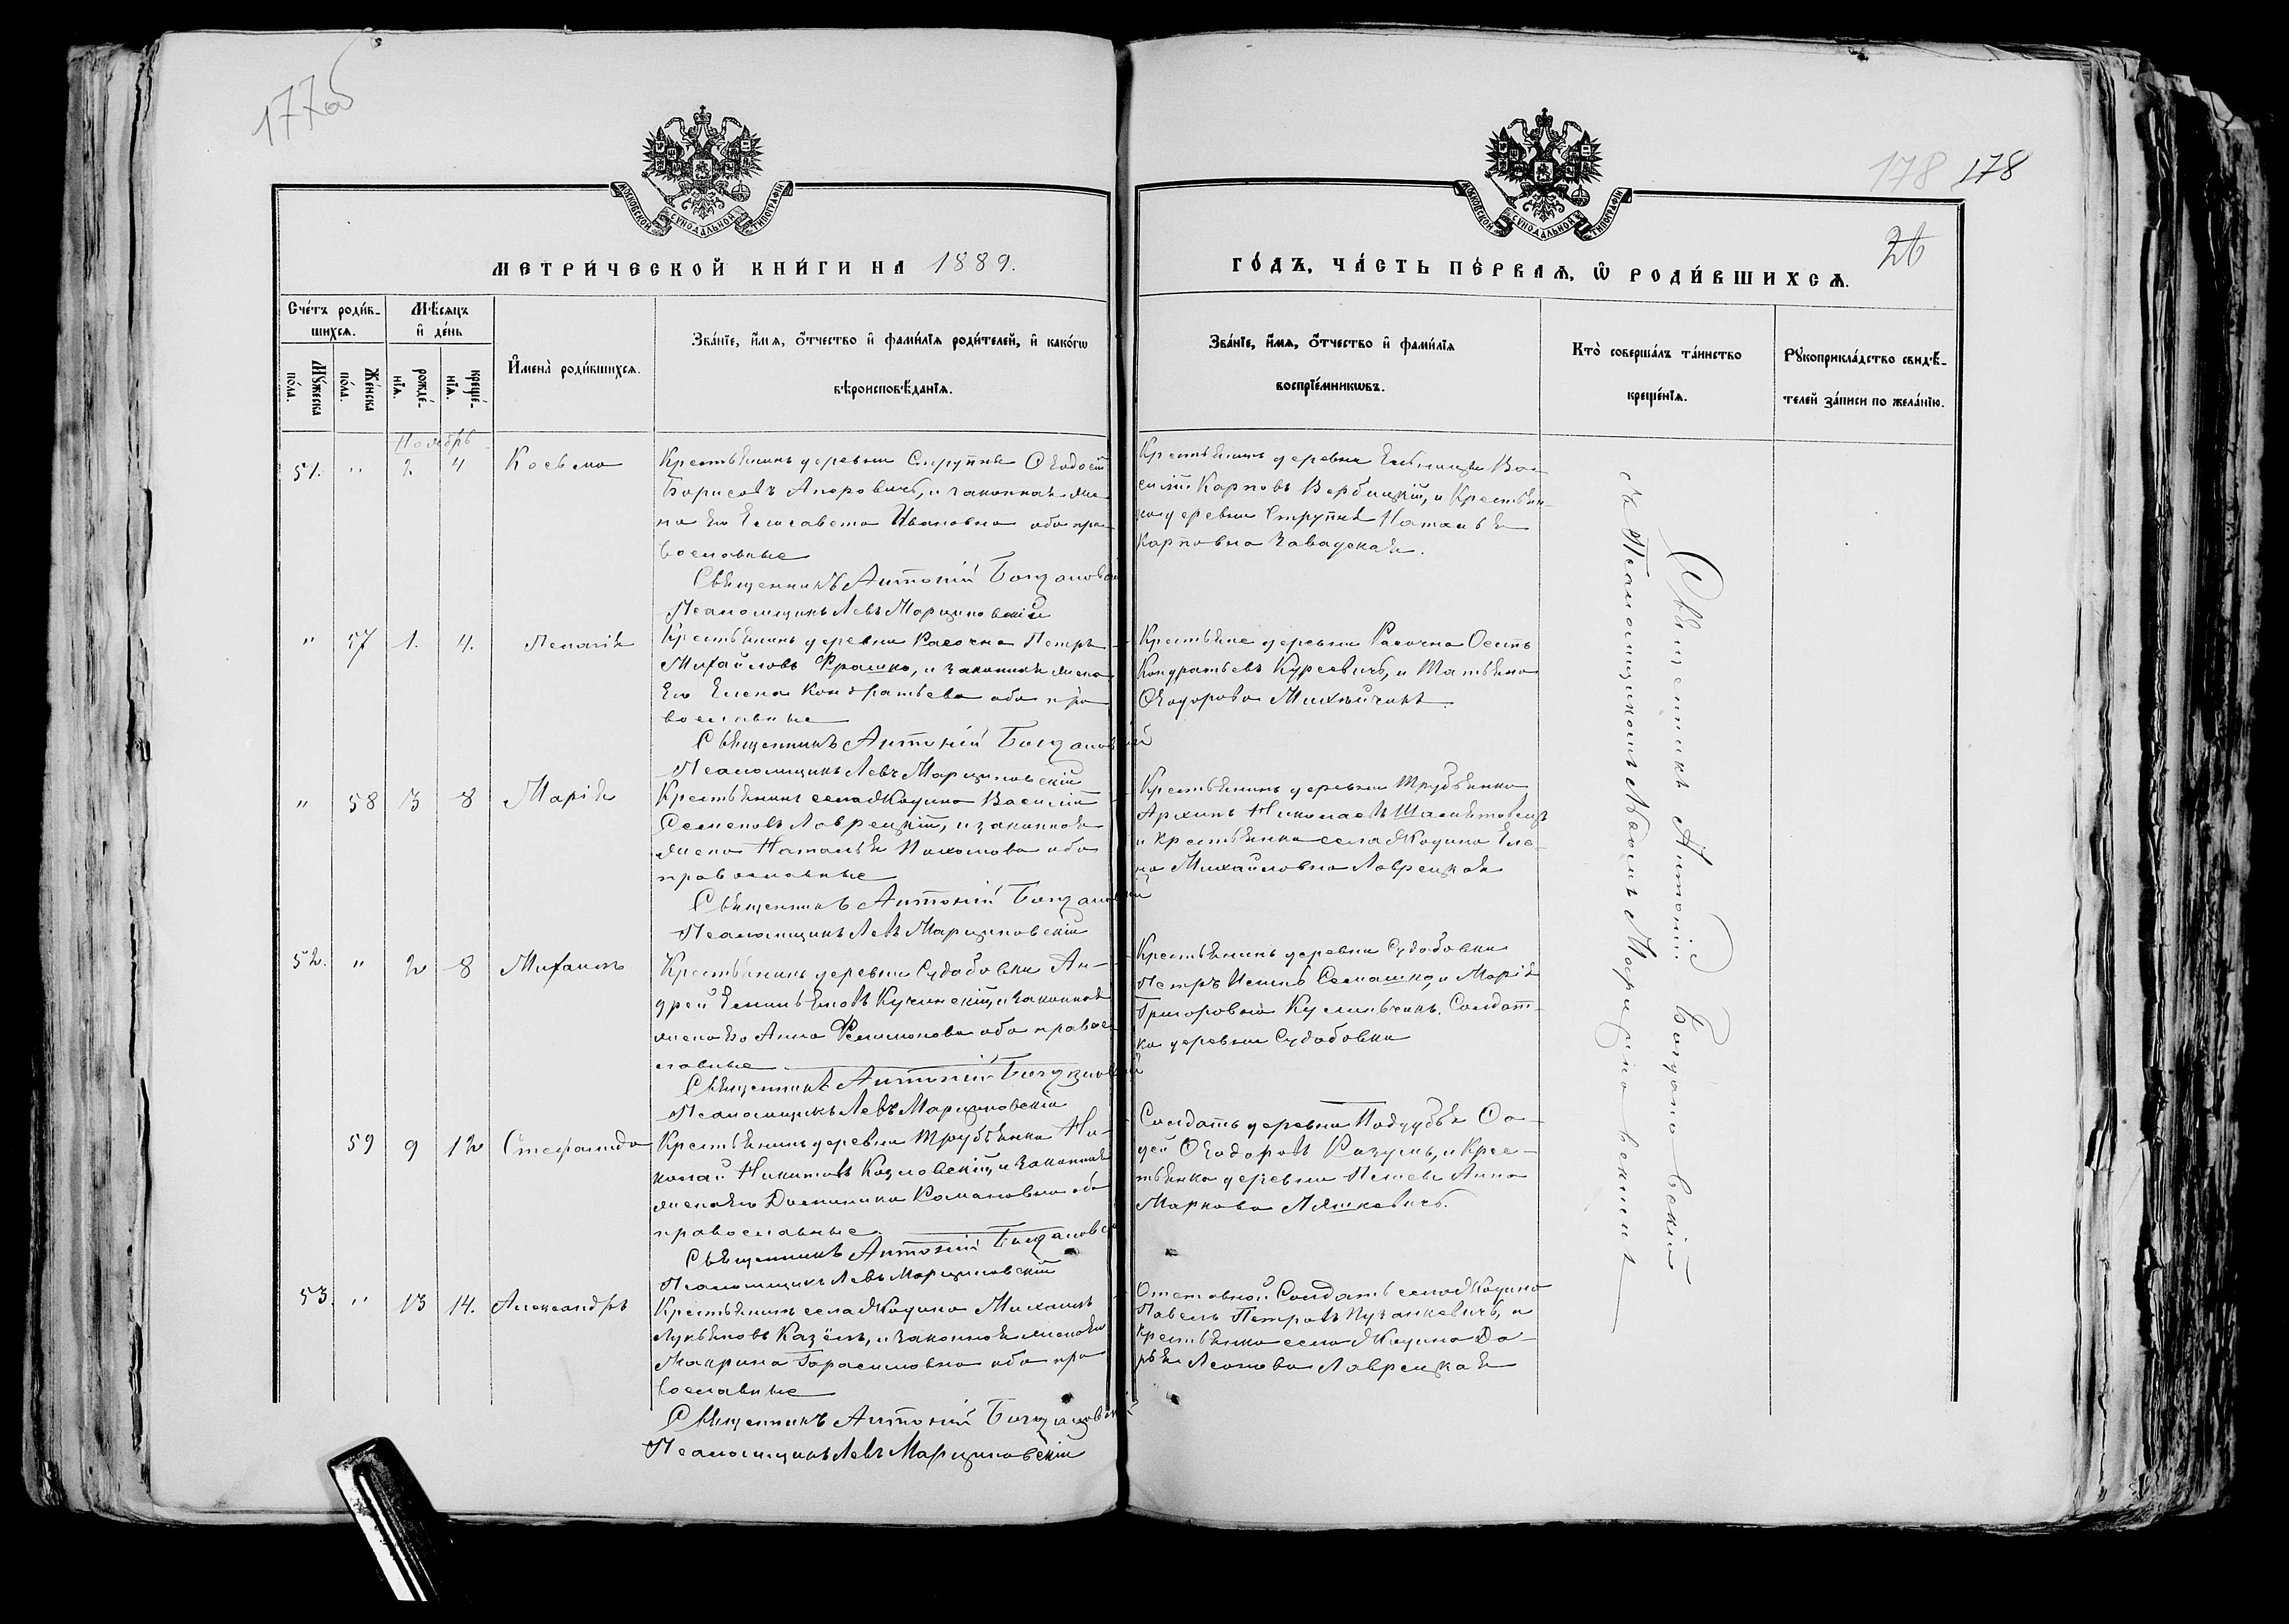 177об
178 178
26
МОСКОВСКОЙ СѴНОДАЛЬНОЙ ТИПОГРАФІИ
МОСКОВСКОЙ СѴНОДАЛЬНОЙ ТИПОГРАФІИ
МЕТРИ́ЧЕСКОЙ КНИ́ГИ НА 1889.
ГО́ДЪ, ЧА́СТЬ ПЕ́РВАѦ, Ѿ РОДИ́ВШИХСѦ.
Сче́тъ роди́в-
шихся.
Мѣ́сяцъ
и де́нь
Мꙋ́жеска
по́ла.
Же́нска
по́ла.
рожде́-
нїя.
креще́-
нїя.
И҆мена̀ роди́вшихся.
Зва́нїе, и҆́мя, ѻ҆́тчество и҆ фами́лїя роди́телей, и҆ како́гѡ
вѣроисповѣ́данїя.
Зва́нїе, и҆́мя, ѻ҆́тчество и҆ фами́лїя
воспрїе́мникѡвъ.
Кто̀ соверша́лъ та́инство
креще́нїя.
Рꙋкоприкла́дство свидѣ́-
телей за́писи по жела́нїю.
Ноябрь
51. " 2 4 Косьма
Крестьянинъ деревни Струпня Ѳеодосій
Борисовъ , и законная же-
на его Елисавета Ивановна оба пра-
вославные
Священникъ Антоній Богданов
Псаломщикъ Левъ Марциновскій
Крестьянинъ деревни Ва-
силій Карповъ Вербицкій, и Крестьян-
ка деревни Струпня Наталья
Карповна Завадская.
" 57 1. 4. Пелагія
Крестьянинъ деревни Расочна Петръ
Михайловъ Фрашко, и законная жена
Его Елена Кондратьева оба пра
вославные
Священникъ Антоній Богдановскій
Псаломщикъ Левъ Марциновскій
Крестьяне деревни Расочна Осипъ
Кондратьевъ Курсевичъ, и Татьяна
Ѳеодорова
" 58 13 8 Марія
Крестьянинъ села Жодина Василій
Семеновъ Лаврецкій, и законная
жена Наталья Пахомова оба
православные
Священникъ Антоній Богдановскій
Псаломщикъ Левъ Марциновскій
Крестьянинъ деревни Трубянка
Архипъ Николаевъ
и крестьянка села Жодина Еле-
на Михайловна Лаврецкая
52. " 2 8 Михаилъ
Крестьянинъ деревни Судобовки Ан-
дрей Емельяновъ Кучинскій, и законная
жена его Анна Филимонова оба правос
лавные
Священникъ Антоній Богдановскій
Псаломщикъ Левъ Марциновскій
Крестьянинъ деревни Судобовки
Петръ Семашко и Марія
Григоровна , Солдат-
ка деревни Судобовки
59 9 12 Стефанида
Крестьянинъ деревни Трубянка Ни-
колай Никитовъ Козловскій, и законная
жена его Доминика Романовна оба
православные
Священникъ Антоній Богдановс
Псаломщикъ Левъ Марциновскій
Солдатъ деревни Поддубья
Ѳеодоровъ Разумъ, и Крес-
тьянка деревни Анна
Маркова Ляшкевичъ.
53. " 13 14. Александръ
Крестьянинъ села Жодина Михаилъ
Лукьяновъ Казёлъ, и законная жена его
Макрина Гарасимовна оба пра
вославные
Священникъ Антоній Богдановск
Псаломщикъ Левъ Марциновскій
Отставной Солдатъ села Жодина
Павелъ Петровъ , и
крестьянка села Жодина Да-
рья Леонова Лаврецкая
Священникъ Антоній Богдановскій
съ Псаломщикомъ Львомъ Марциновскимъ